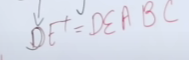 DE⁺ = DEABC